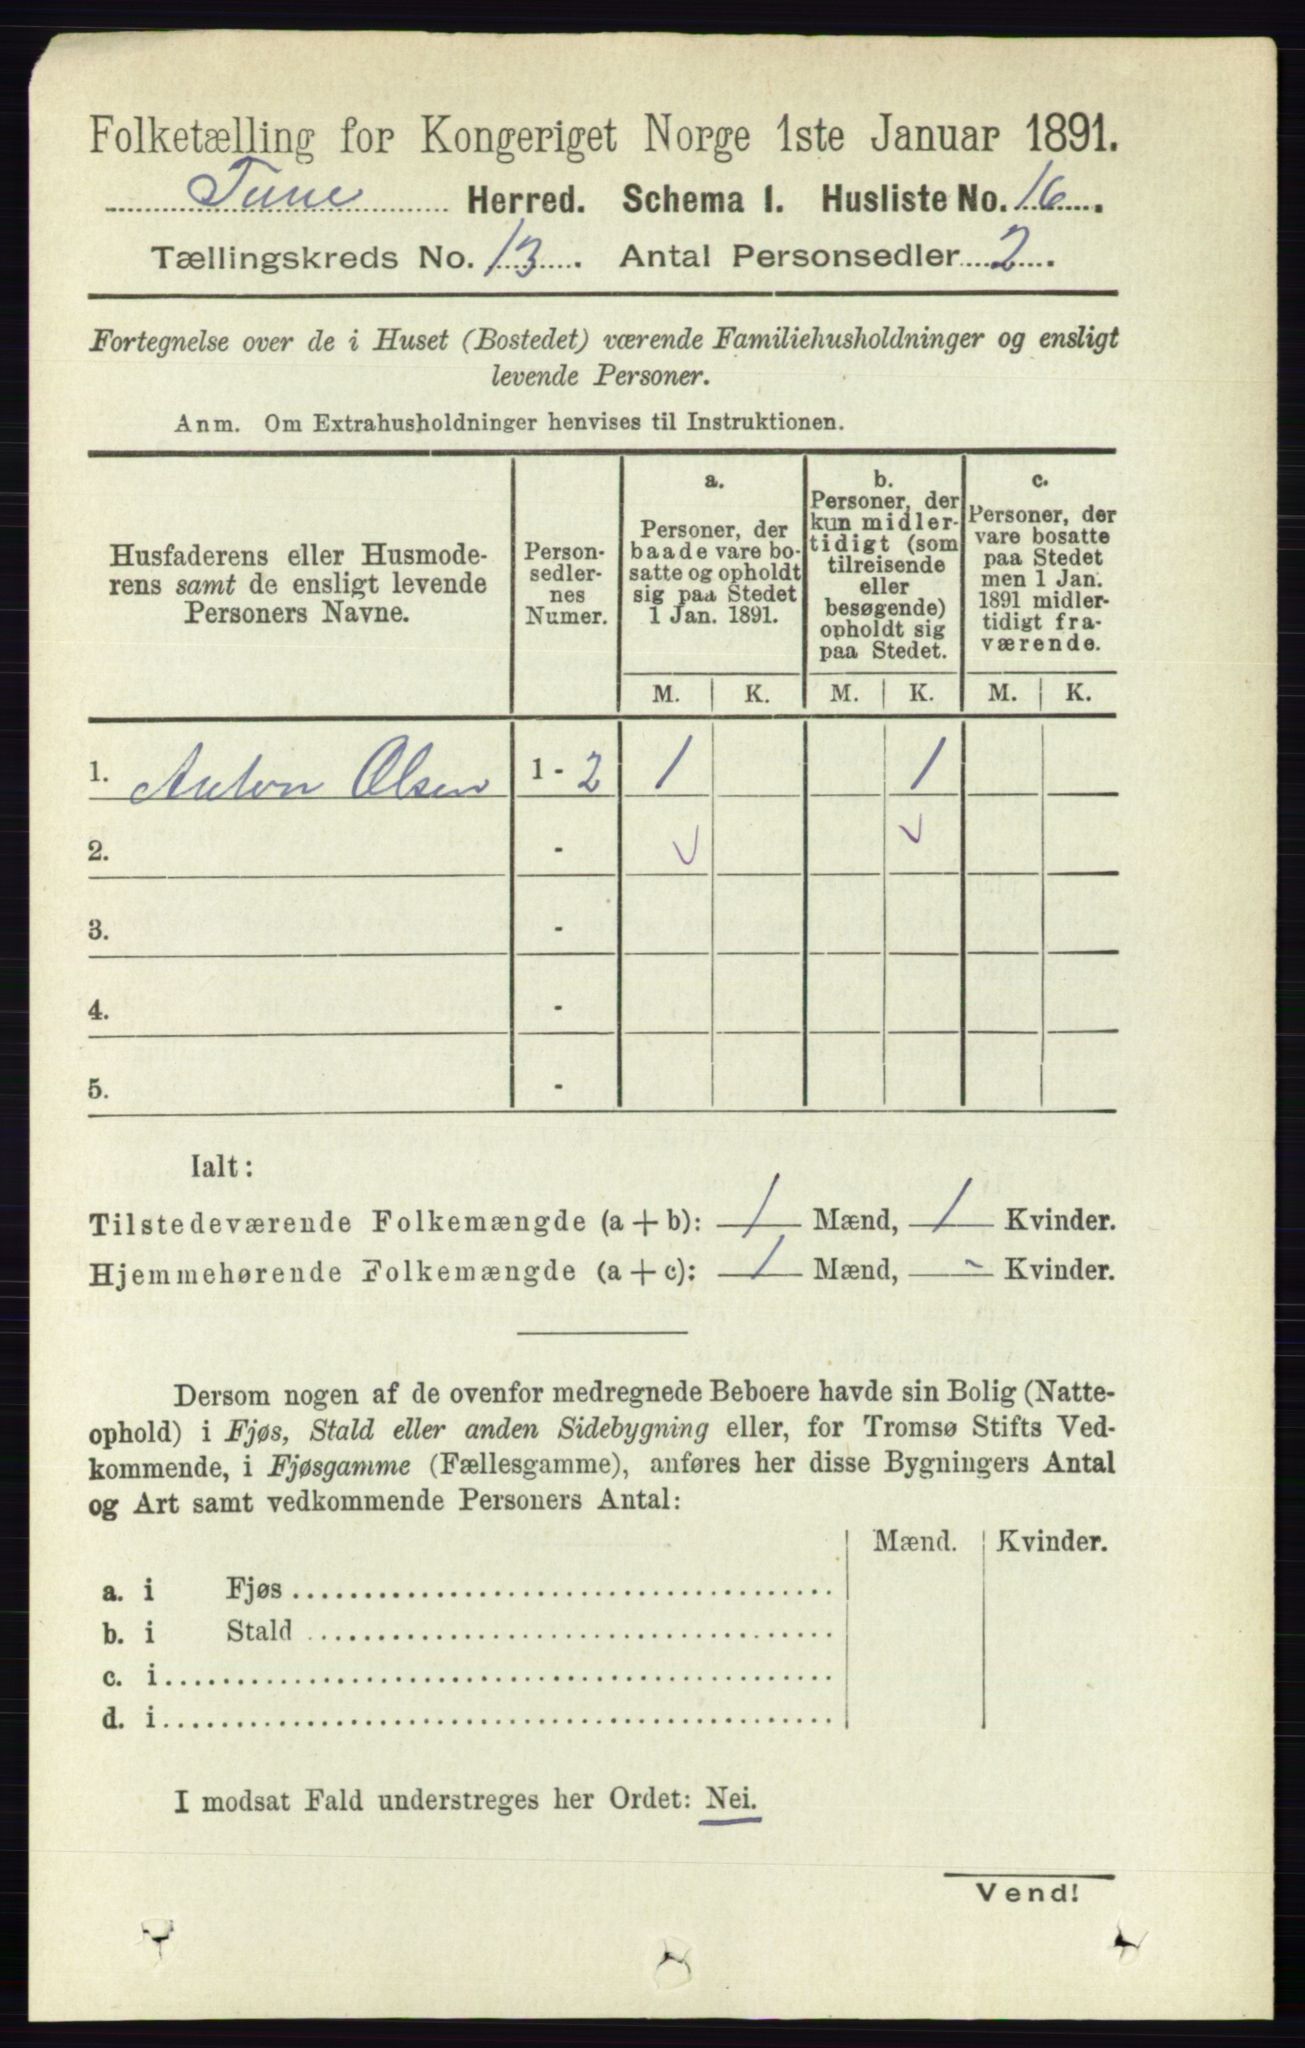 Folketælling for Kongeriget Norge 1ste Januar 1891.
Tune Herred. Schema I. Husliste No. 16.
Tællingskreds No. 13. Antal Personsedler 2.
Fortegnelse over de i Huset (Bostedet) værende Familiehusholdninger og ensligt
levende Personer.
Anm. Om Extrahusholdninger henvises til Instruktionen.
Husfaderens eller Husmode-
rens samt de ensligt levende
Personers Navne.
Person-
sedler-
nes
Numer.
a.
Personer, der
baade vare bo-
satte og opholdt
sig paa Stedet
1 Jan. 1891.
b.
Personer, der
kun midler-
tidigt (som
tilreisende
eller
besøgende)
opholdt sig
paa Stedet.
c.
Personer, der
vare bosatte
paa Stedet
men 1 Jan.
1891 midler-
tidigt fra-
værende.
M. K. M. K. M. K.
1. Anton Olsen 1 - 2 1 1
2. - ✓ ✓
3. -
4. -
5. -
Ialt:
Tilstedeværende Folkemængde (a + b): 1 Mænd, 1 Kvinder.
Hjemmehørende Folkemængde (a + c): 1 Mænd, - Kvinder.
Dersom nogen af de ovenfor medregnede Beboere havde sin Bolig (Natte-
ophold) i Fjøs, Stald eller anden Sidebygning eller, for Tromsø Stifts Ved-
kommende, i Fjøsgamme (Fællesgamme), anføres her disse Bygningers Antal
og Art samt vedkommende Personers Antal:
Mænd. Kvinder.
a. i Fjøs
b. i Stald
c. i
d. i
I modsat Fald understreges her Ordet: Nei.
Vend!